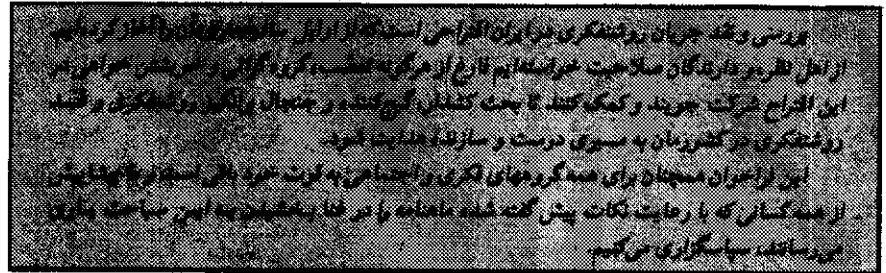 بررسی و نقد جریان روشنفکری در ایران اقتراحی است که از اوایل سال جاری آن را آغاز کرده‌ایم.
از اهل نظر و دارندگان صلاحیت خواسته‌ایم فارغ از هرگونه تعصب، گروه‌گرائی و خویشتن خواهی در
این اقتراح شرکت جویند و کمک کنند تا بحث کشدار، گیج‌کننده و جنجال برانگیز روشنفکری و نقد
روشنفکری در کشورمان به مسیری درست و سازنده هدایت شود.
این فراخوان همچنان برای همه گروههای فکری و اجتماعی به قوت خود باقی است و ما پیشاپیش
از همه کسانی که با رعایت نکات پیش گفته شده ماهنامه را در غنا بخشیدن به این مباحث یاری
می‌رسانند، سپاسگزاری می‌کنیم.